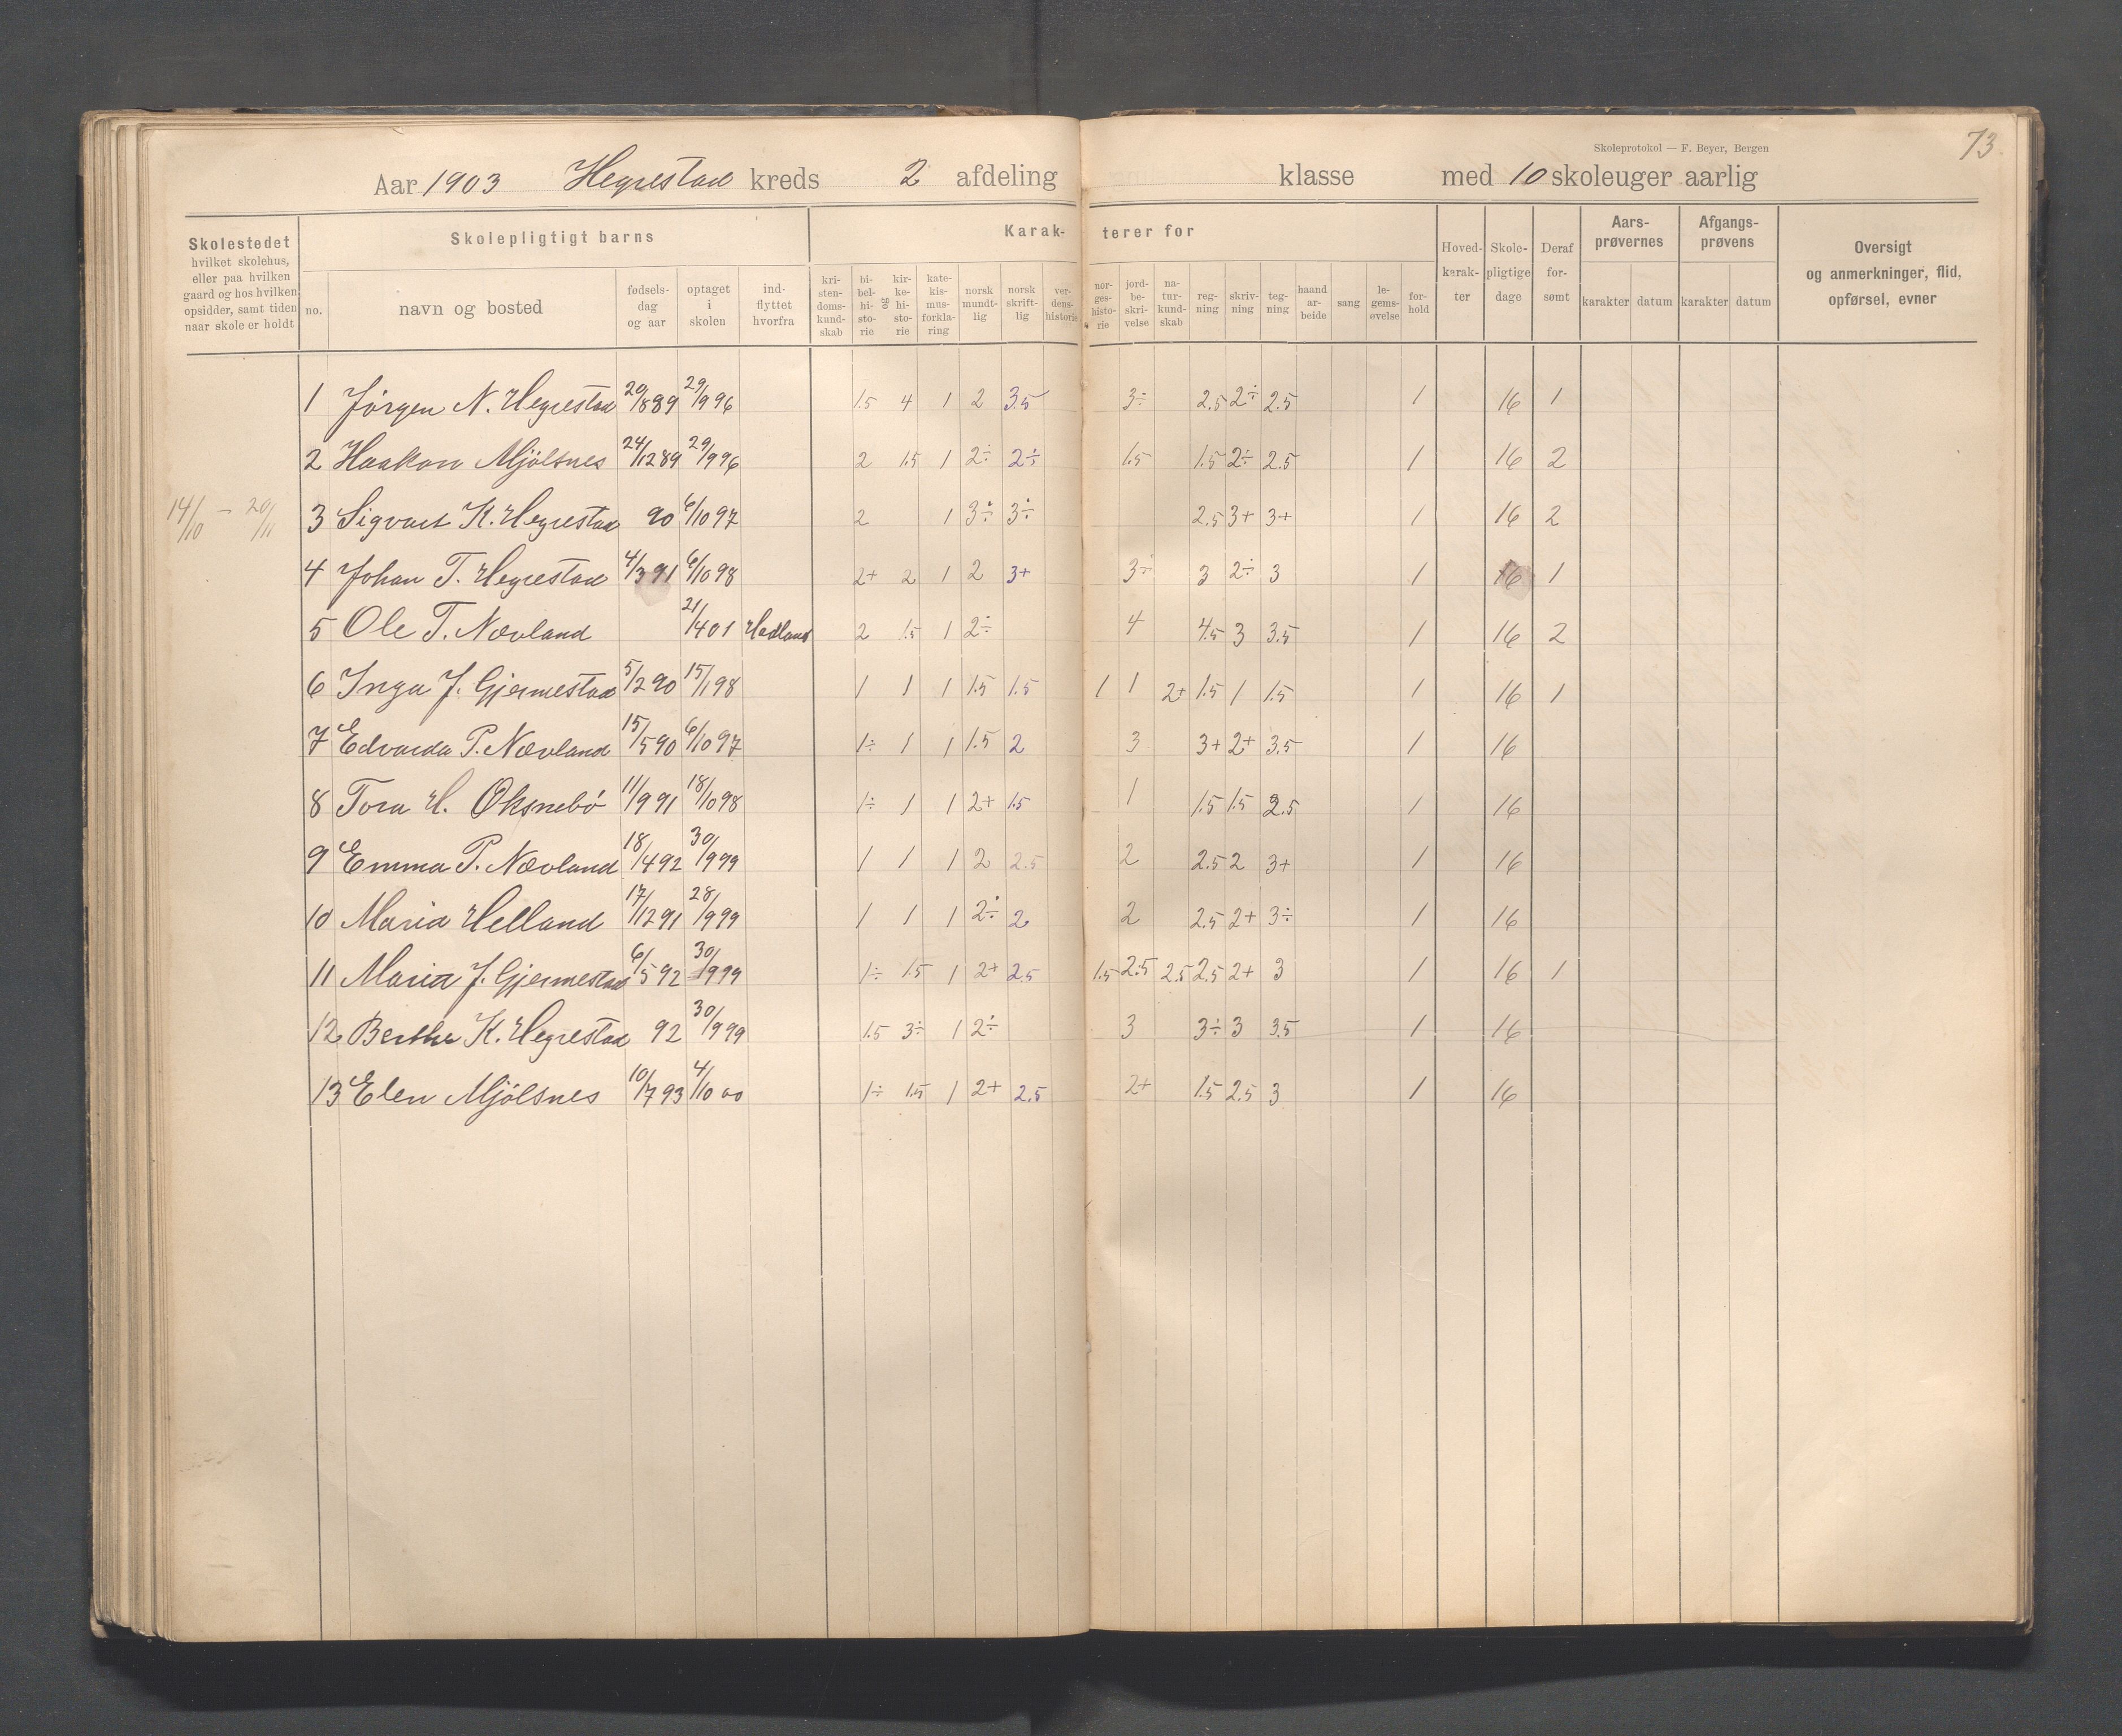 73
Skoleprotokol — F. Beyer, Bergen
Aar 1903 Hegrestad kreds 2 afdeling klasse med 10 skoleuger aarlig
Skolestedet hvilket skolehus, eller paa hvilken gaard og hos hvilken opsidder, samt tiden naar skole er holdt
Skolepligtigt barns
Karak- terer for
no. navn og bosted fødsels-dag og aar optaget i skolen ind-flyttet hvorfra kri-sten-doms-kund-skab bi-bel-hi-sto-rie og kir-ke-hi-sto-rie kate-kis-mus-forkla-ring norsk mundt-lig norsk skrift-lig ver-dens-historie nor-ges-histo-rie jord-be-skri-velse na-tur-kund-skab reg-ning skriv-ning teg-ning haand ar-beide sang le-gems-øvelse for-hold
Hoved-karak-ter Skole-pligtige dage Deraf for-sømt Aars-prøvernes karakter datum Afgangs-prøvens karakter datum
Oversigt og anmerkninger, flid, opførsel, evner
1 Jørgen N. Hegrestad 20/8 89 29/9 96 1.5 4 1 2 3.5 3÷ 2.5 2÷ 2.5 1 16 1
2 Haakon Mjölsnes 24/12 89 29/9 96 2 1.5 1 2÷ 2÷ 1.5 1.5 2÷ 2.5 1 16 2
14/10 — 20/11 3 Sigvart K. Hegrestad 90 6/10 97 2 1 3÷ 3÷ 2.5 3+ 3+ 1 16 2
4 Johan T. Hegrestad 4/3 91 6/10 98 2+ 2 1 2 3+ 3÷ 3 2÷ 3 1 16 1
5 Ole T. Nævland 21/4 01 Hadland 2 1.5 1 2÷ 4 4.5 3 3.5 1 16 2
6 Inga J. Gjermestad 5/2 90 15/1 98 1 1 1 1.5 1.5 1 1 2+ 1.5 1 1.5 1 16 1
7 Edvarda P. Nævland 15/5 90 6/10 97 1÷ 1 1 1.5 2 3 3+ 2+ 3.5 1 16
8 Tora H. Øksnebö 11/9 91 18/10 98 1÷ 1 1 2+ 1.5 1 1.5 1.5 2.5 1 16
9 Emma P. Nævland 18/4 92 30/9 99 1 1 1 2 2.5 2 2.5 2 3+ 1 16
10 Maria Helland 17/12 91 28/9 99 1 1 1 2÷ 2 2 2.5 2+ 3÷ 1 16
11 Maria J. Gjermestad 6/5 92 30/9 99 1÷ 1.5 1 2+ 2.5 1.5 2.5 2.5 2.5 2+ 3 1 16 1
12 Berthe K. Hegrestad 92 30/9 99 1.5 3÷ 1 2÷ 3 3÷ 3 3.5 1 16
13 Elen Mjölsnes 10/7 93 4/10 00 1÷ 1.5 1 2+ 2.5 2+ 1.5 2.5 3 1 16